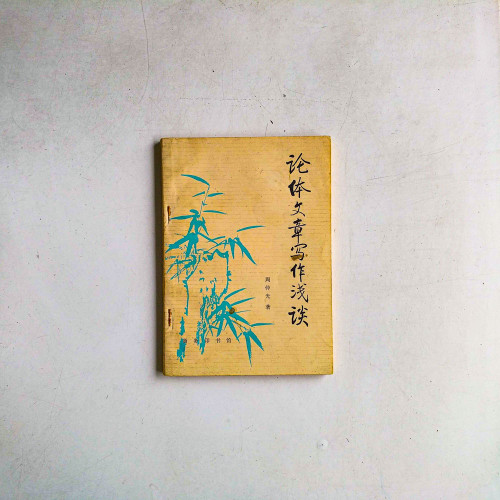 论体文章写作浅谈
周仲光 著
印书馆